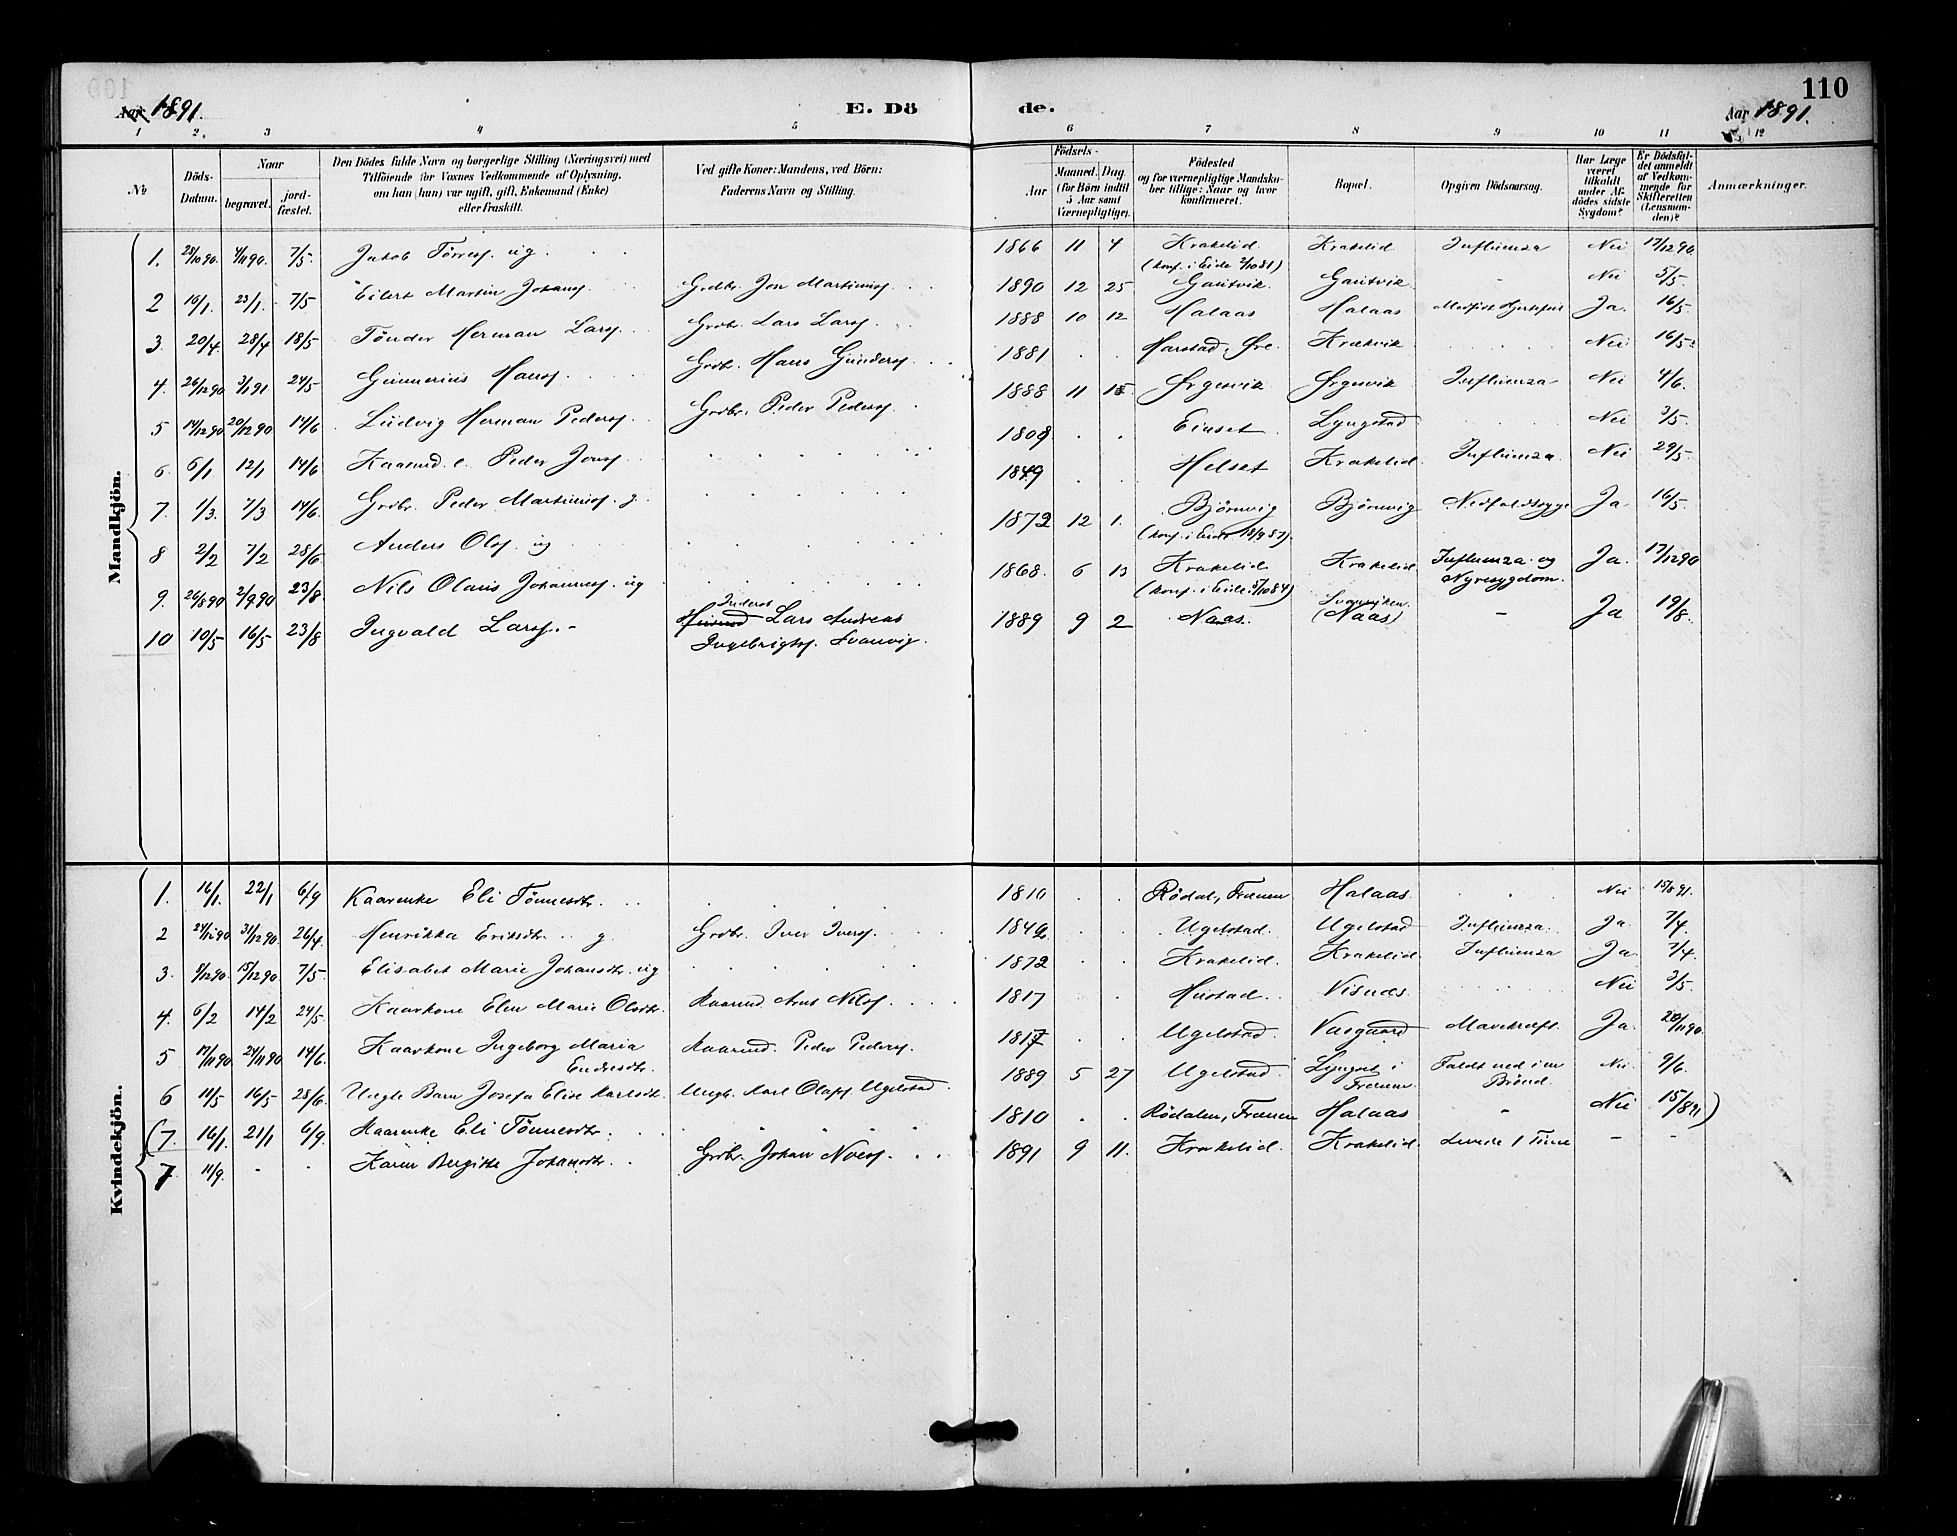 110
Aar 1891.
E. Dö
de.
Aar 1891.
1 2. 3 4 5 6 7 8 9 10 11 12
№
Döds-Datum.
Naar
begravet.
jord-fæstet.
Den Dödes fulde Navn og borgerlige Stilling (Næringsvei) med
Tilföiende for Voxnes Vedkommende af Oplysning,
om han (hun) var ugift, gift, Enkemand (Enke)
eller fraskilt.
Ved gifte Koner: Mandens, ved Börn:
Faderens Navn og Stilling.
Födsels-
Aar
Maaned. Dag
(for Börn indtil
5 Aar samt
Værnepligtige).
Födested
og for værnepligtige Mandsku-
ber tillige: Naar og hvor
konfirmeret.
Bopæl.
Opgiven Dödsaarsag.
Har Læge
været
tilkaldt
under Af-
dödes sidste
Sygdom?
Er Dödsfal-
det anmeldt
af Vedkom-
mende for
Skifteretten
(Lensman-
den)?
Anmærkninger.
Mandkjön.
1. 28/10 90. 4/11 90. 7/5. Jakob Törres. ug. 1866 11 4 Krakelid (konf. i Eide 2/10 81) Krakelid Influenza Nei 17/12 90
2 16/1. 23/1. 7/5 Eilert Martin Johans. Grdbr. Jon Martinus. 1890 12 25 Gautvik Gautvik. - Nei 5/5.
3. 20/4 28/4 18/5 Tönder Herman Lars. Grdbr. Lars Lars. 1888 10 12 Halaas Halaas Ja. 16/5.
4. 26/12 90 3/1 91 24/5 Gunnerius Hans. Grdbr. Hans Gunders. 1881 . . Harstad, Öre Krækvik Nei 16/5.
5 14/12 90 20/12 90 14/6 Ludvig Herman Peders. Grdbr. Peder Peders. 1888 11 15 Örgenvik Örgenvik Influenza Nei 4/6.
6. 6/1 12/1 14/6 Kaarmd. e. Peder Jons. 1809 . . Eiaset Lyngstad Nei 3/5.
7. 1/3. 7/3 14/6. Grdbr. Peder Martinus. g. 1849 . . Helset Krakelid Influenza Nei 29/5.
8 2/2 7/2 28/6 Anders Ols. ug 1872 12 1. Björnvig (konf. i Eide 18/9 87) Björnvig Nedfaldssyge Ja 16/5.
9. 26/8 90 2/9 90 23/8 Nils Olaus Johannes. ug 1868. 6 13 Krakelid (konf. i Eide 5/10 84) Krakelid. Influenza og Nyresygdom. Ja. 17/12 90
10 10/5 16/5 23/8 Ingvald Lars. - Inderst Lars Andreas Ingebrigts. Svanvig. 1889 9 2 Naas. Svanviken (Naas) - Ja 19/8.
Kvindekjön.
1. 16/1. 22/1 6/9 Kaarenke Eli Tönnesdtr. 1810 . . Rödal, Fræna Halaas Nei 15/8 91.
2 24/12 90 31/12 90 26/4. Henrikka Eriksdtr. g. Grdbr. Iver Ivers. 1849 . . Ugelstad. Ugelstad Influenza. Ja 7/4.
3. 9/12 90. 15/12 90 7/5. Elisabet Marie Johansdtr. ug 1872 . . Krakelid. Krakelid. Influenza Ja. 7/4.
4. 6/2 14/2 24/5. Kaarkone Elen Marie Olsdtr. Kaarmd. Arnt Nils. 1817 . . Hustad. Visnes. Nei 3/5.
5 17/11 90 24/11 90 14/6. Kaarkone Ingeborg Maria Endresdtr. Kaarmd. Peder Peders. 1817 Ugelstad. Vasgaard Mavekræft. Ja. 20/11 90.
6 11/5 16/5 28/6. Uægte Barn Josefa Elise Karlsdtr. Ungk. Karl Olafs. Ugelstad. 1889 5 27 Ugelstad. Lyngst. i Fræna. Faldt ned i en Brönd. Nei. 9/6.
(7. 16/1. 21/1 6/9. Kaarenke Eli Tönnesdtr. 1810 . . Rödalen, Fræna Halaas " Nei 15/8 91)
7 11/9. - . Karen Bergitte Johansdtr. Grdbr. Johan Ivers. 1891 9 11. Krakelid. Krakelid. Levede 1 Time - -